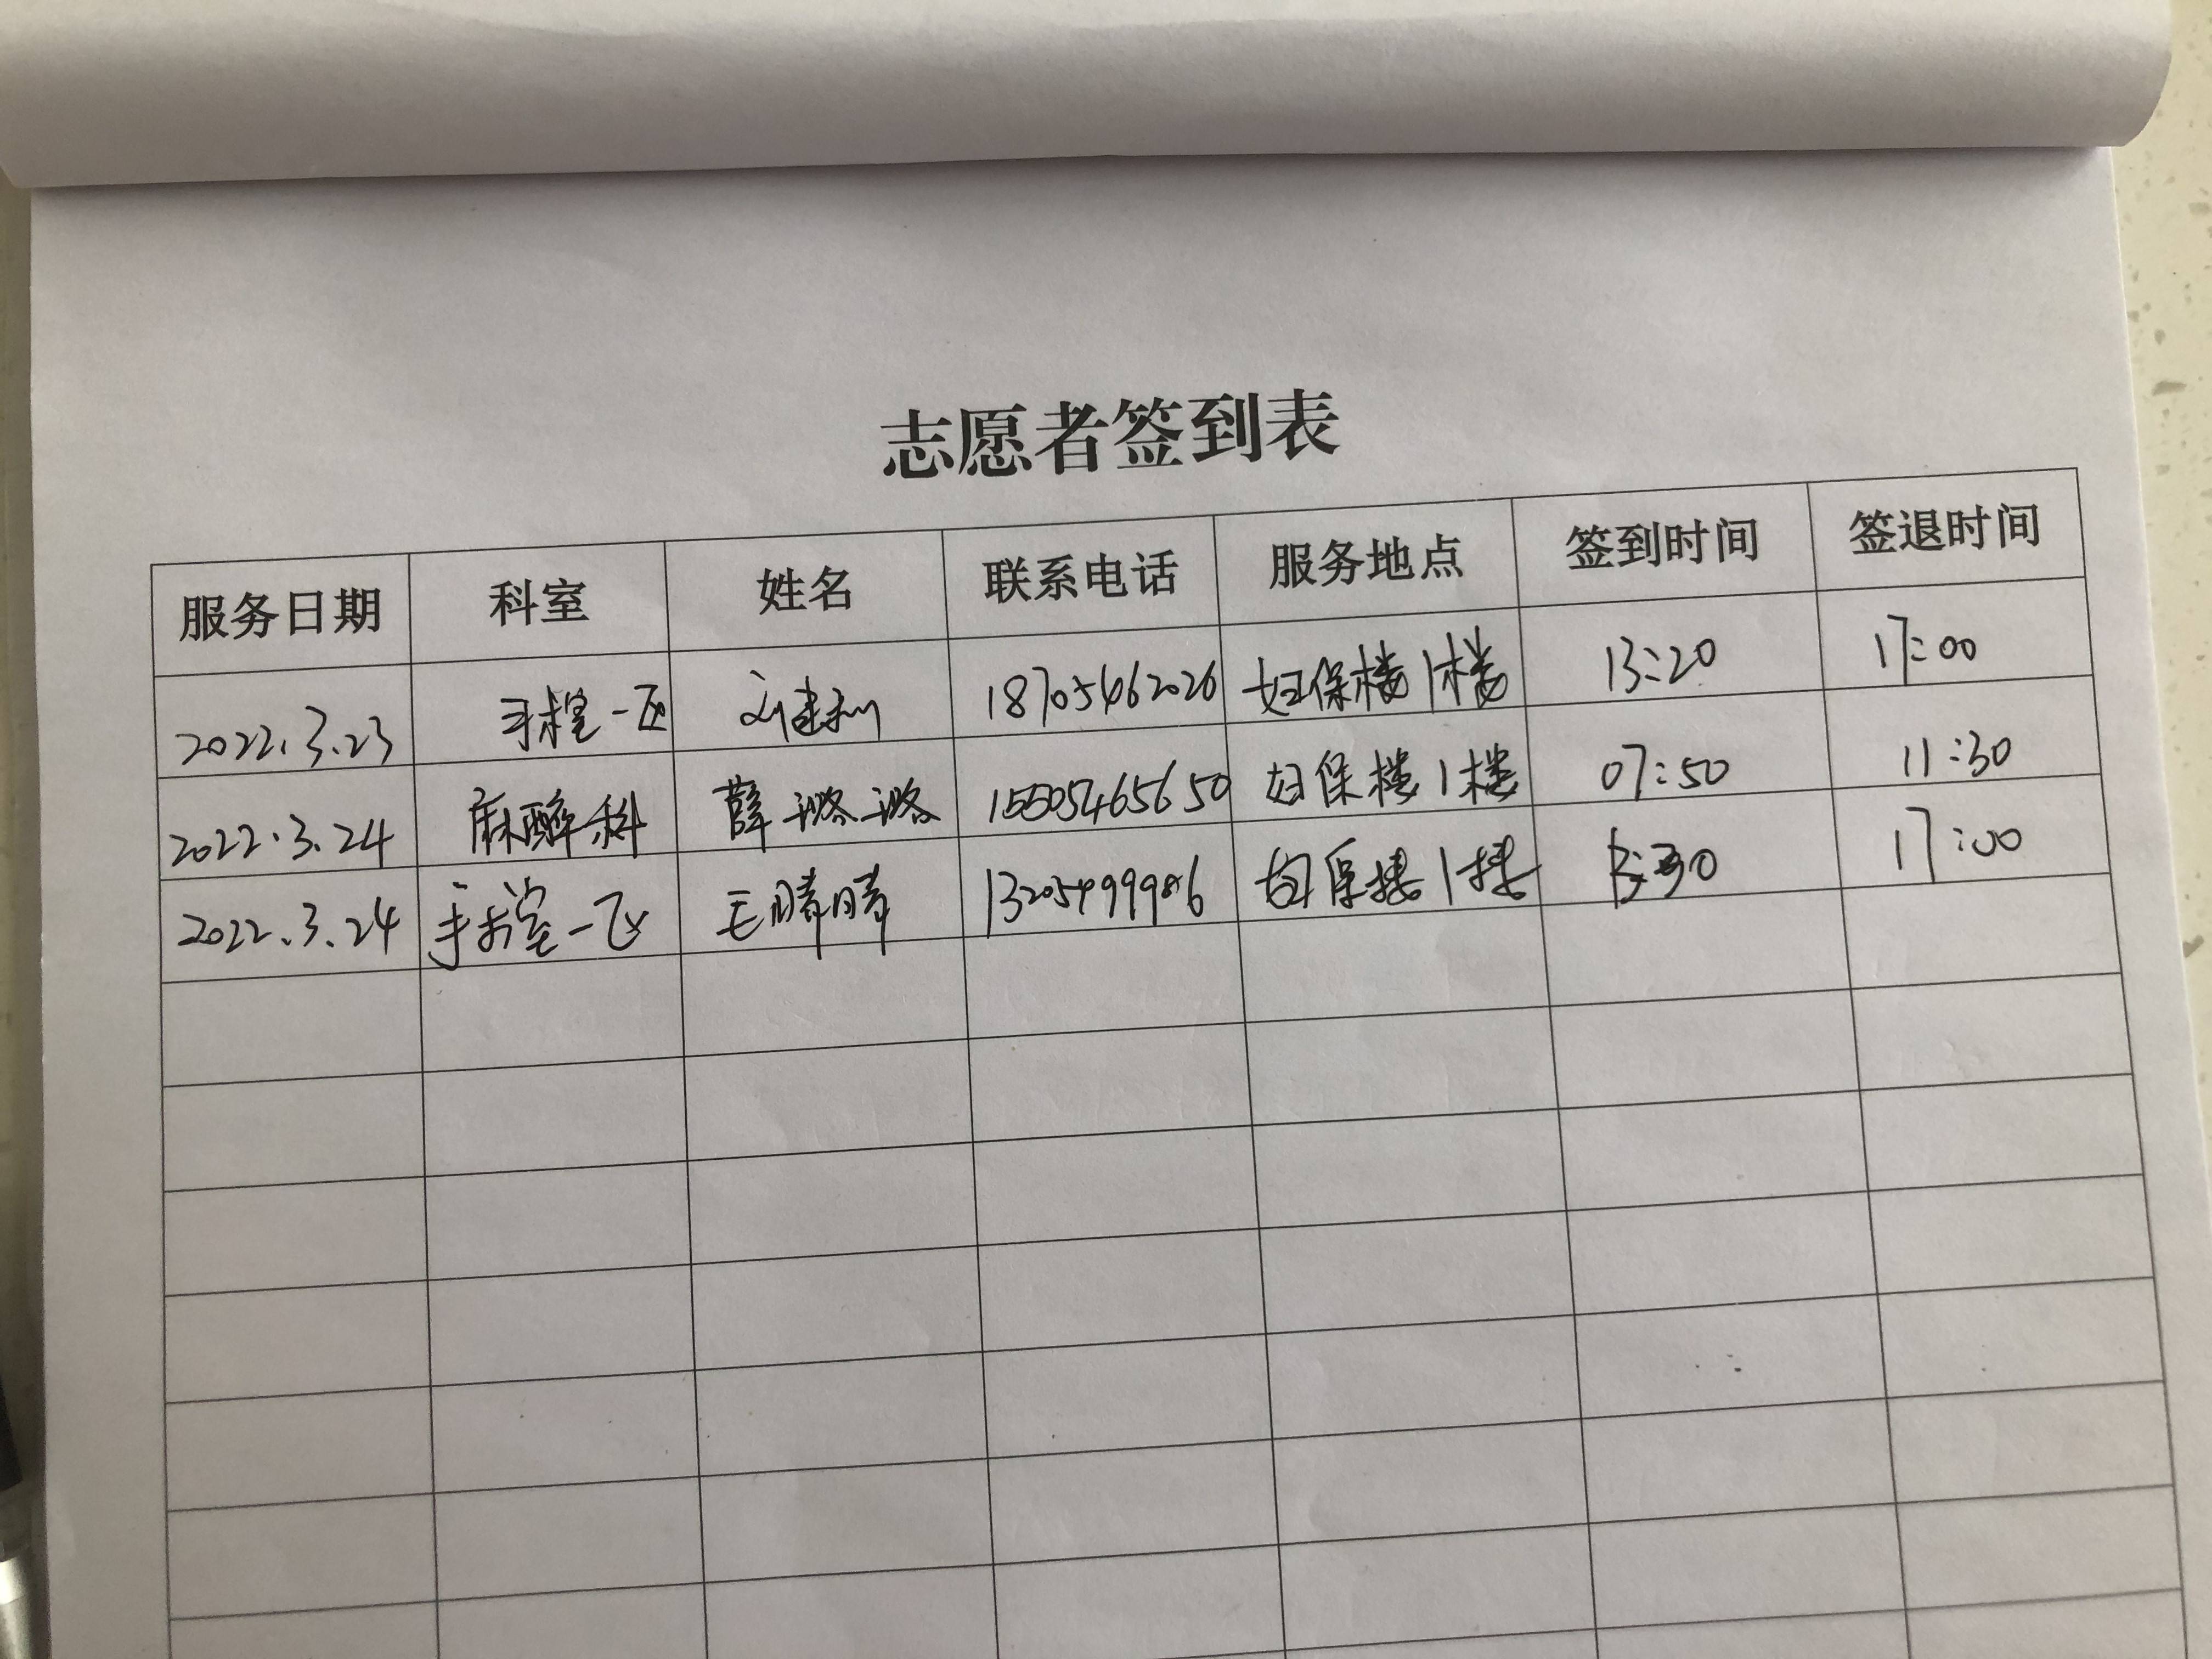 志愿者签到表
服务日期 科室 姓名 联系电话 服务地点 签到时间 签退时间
2022.3.23 手术室一区 刘建利 18705462026 妇保楼1楼 13:20 17:00
2022.3.24 麻醉科 薛璐璐 15505465650 妇保楼1楼 07:50 11:30
2022.3.24 手术室一区 毛晴晴 妇保楼1楼 17:00